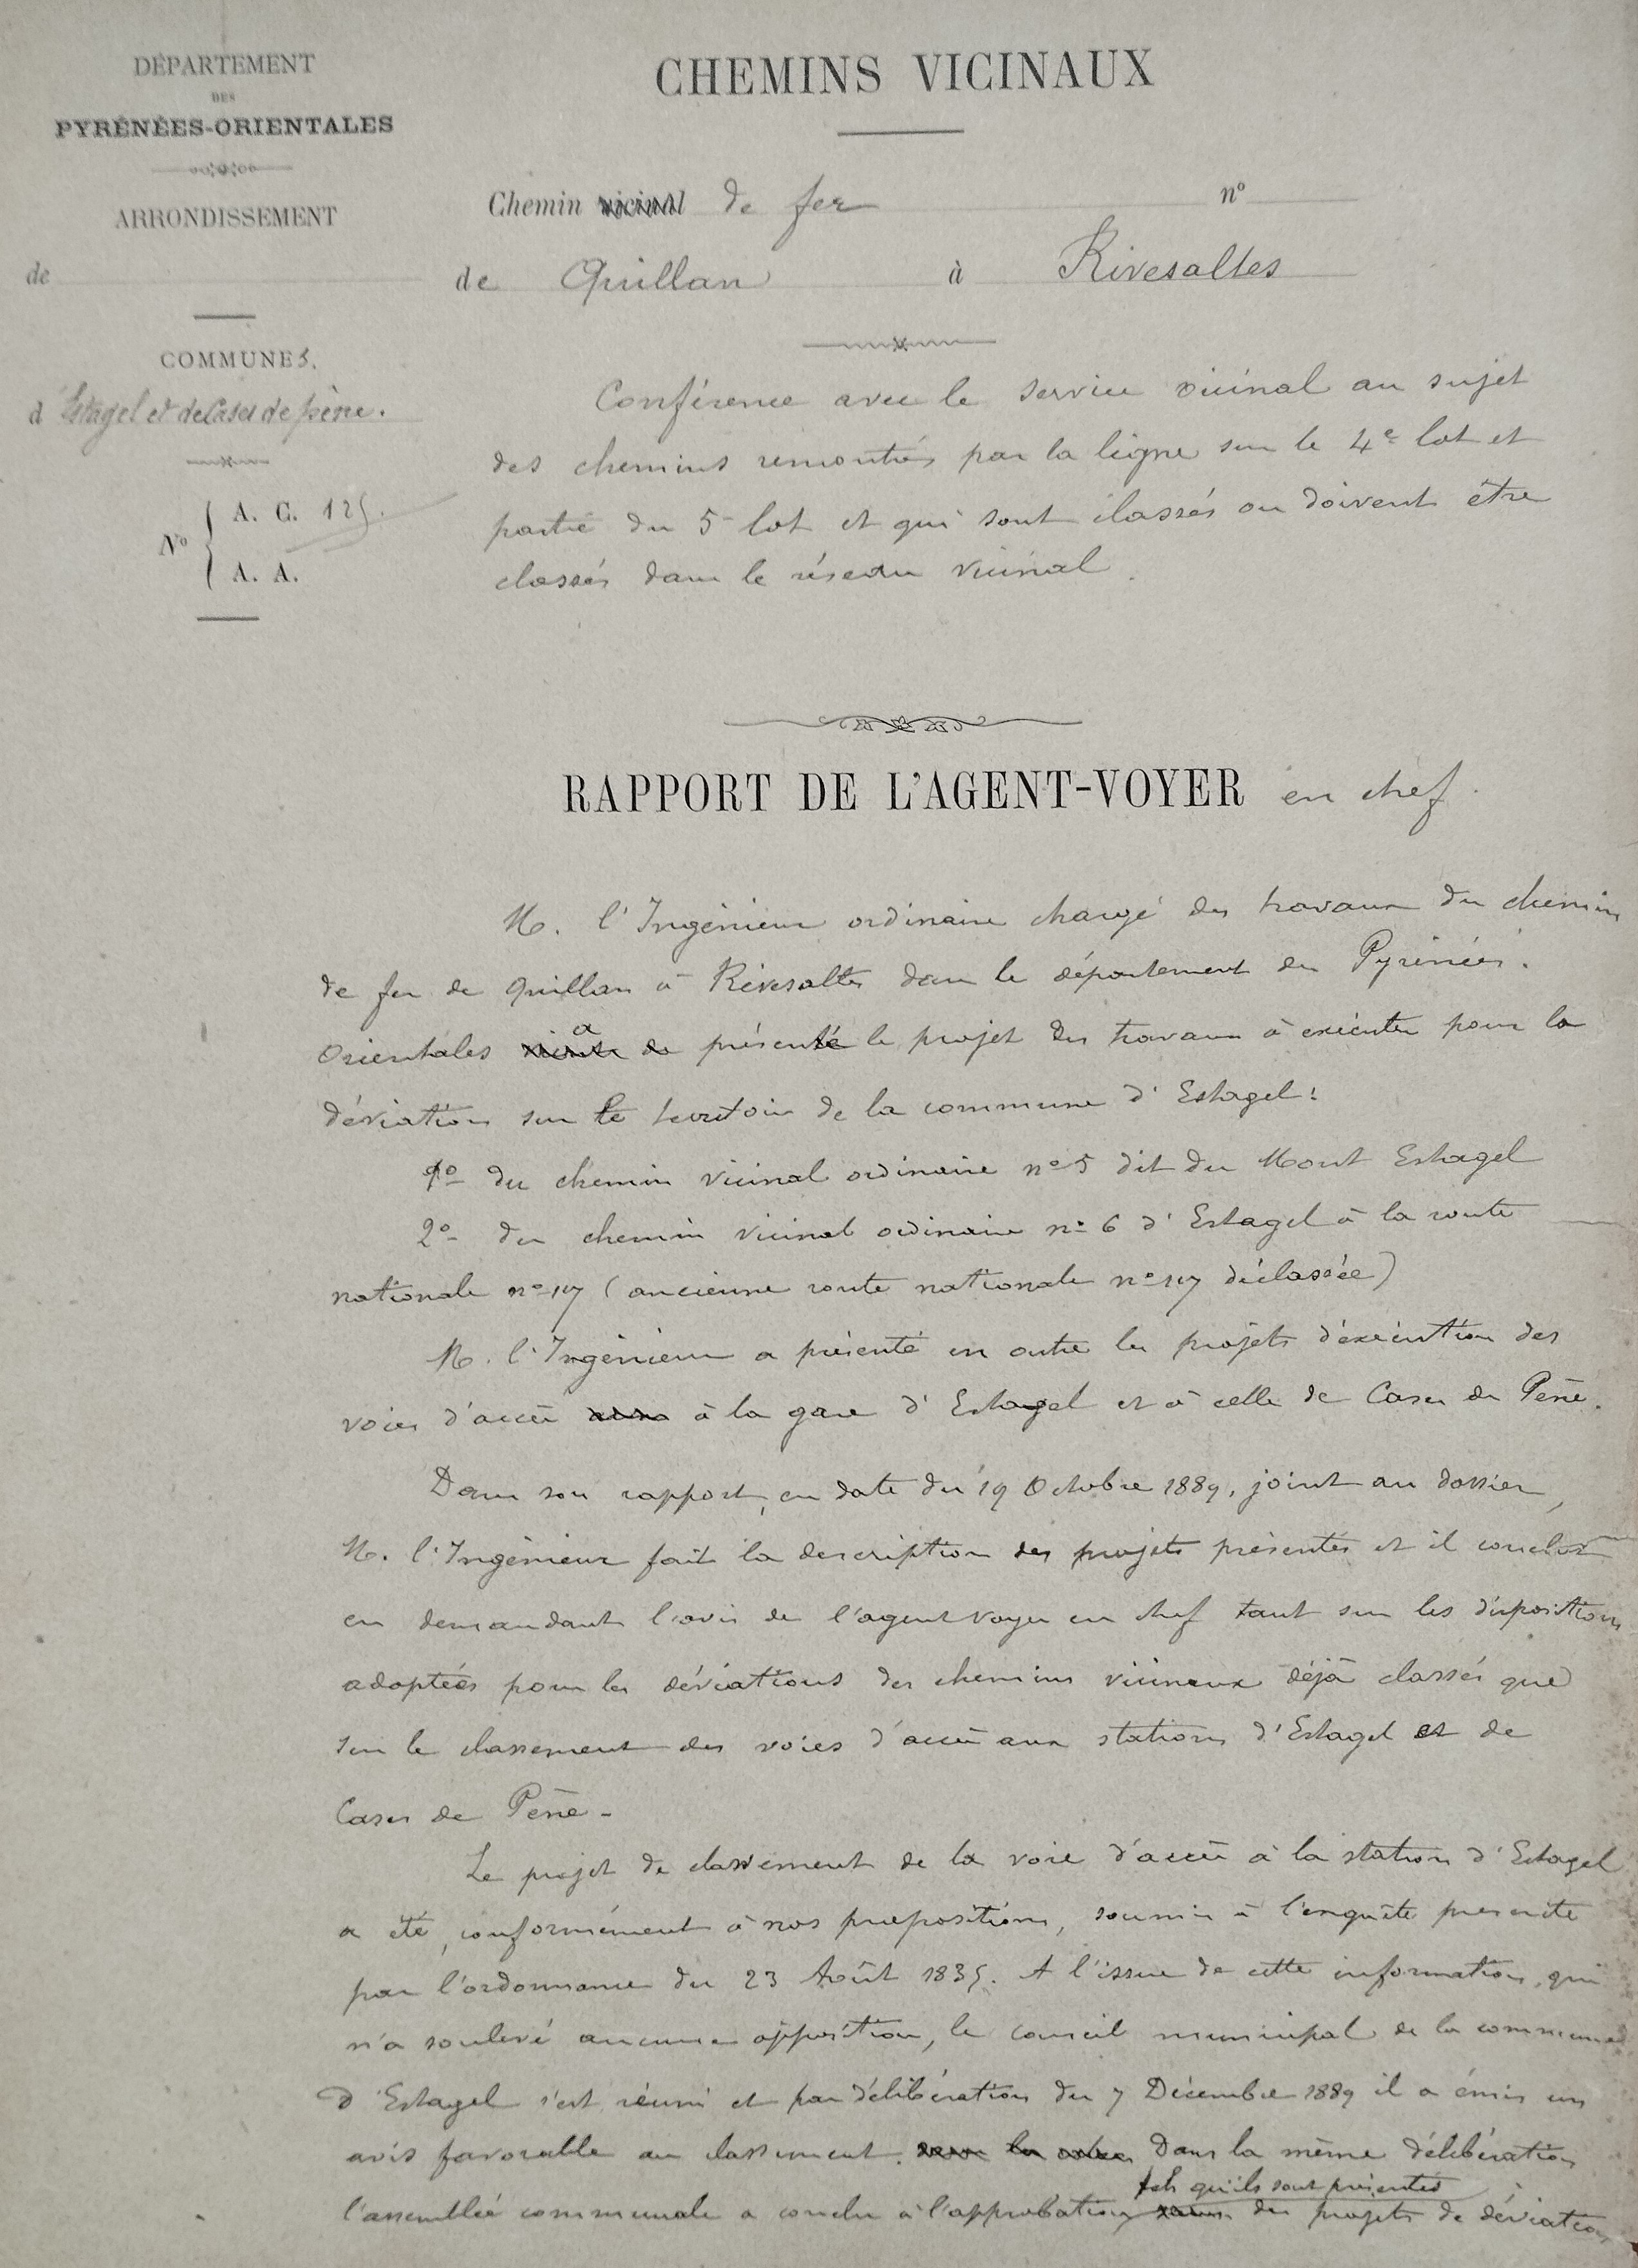 DÉPARTEMENT
DES
PYRÉNÉES-ORIENTALES
ARRONDISSEMENT
de
COMMUNES.
d'Estagel et de Cases de pène.
No
A. C. 125.
A. A.
CHEMINS VICINAUX
Chemin vicinal de fer no
de Quillan à Rivesaltes
Conférence avec le service vicinal au sujet
des chemins rencontrés par la ligne sur le 4e lot et
partie du 5e lot et qui sont classés ou doivent être
classés dans le réseau vicinal.
RAPPORT DE L'AGENT-VOYER en chef.
M. l'Ingénieur ordinaire chargé des travaux du chemin
de fer de Quillan à Rivesaltes dans le département des Pyrénées-
Orientales a présenté le projet des travaux à exécuter pour la
déviation sur le territoire de la commune d'Estagel:
1o du chemin vicinal ordinaire no 5 dit du Mont Estagel
2o du chemin vicinal ordinaire no 6 d'Estagel à la route
nationale no 117 (ancienne route nationale no 117 déclassée)
M. l'Ingénieur a présenté en outre les projets d'exécution des
voies d'accès à la gare d'Estagel et à celle de Cases de Pène.
Dans son rapport, en date du 19 Octobre 1889, joint au dossier,
M. l'Ingénieur fait la description des projets présentés et il conclut
en demandant l'avis de l'agent voyer en chef tant sur les dispositions
adoptées pour les déviations des chemins vicinaux déjà classés que
sur le classement des voies d'accès aux stations d'Estagel et de
Cases de Pène.
Le projet de classement de la voie d'accès à la station d'Estagel
a été, conformément à nos propositions, soumis à l'enquête prescrite
par l'ordonnance du 23 Août 1835. A l'issue de cette information, qui
n'a soulevé aucune opposition, le conseil municipal de la commune
d'Estagel s'est réuni et par délibération du 7 Décembre 1889 il a émis un
avis favorable au classement. Dans la même délibération
tels qu'ils sont présentés
l'assemblée communale a conclu à l'approbation des projets de déviation